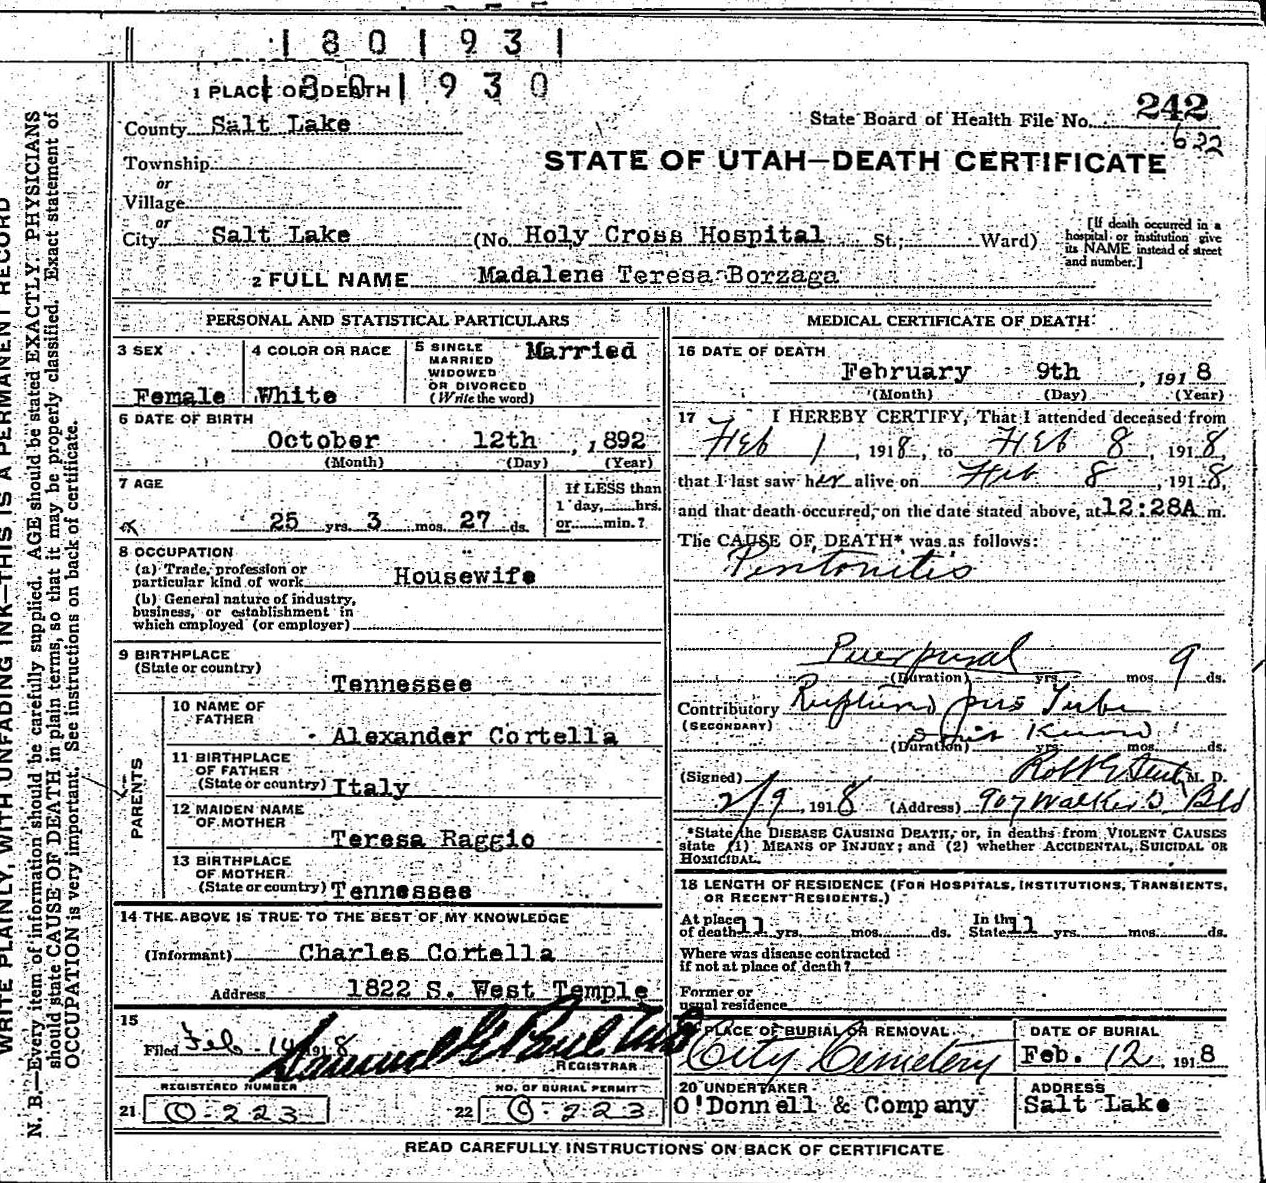 1 8 0 1 9 3 1
1 8 0 1 9 3 0
1 PLACE OF DEATH
State Board of Health File No. 242
622
County Salt Lake
STATE OF UTAH—DEATH CERTIFICATE
Township
or
Village
or
City Salt Lake (No. Holy Cross Hospital St.; Ward)
[If death occurred in a hospital or institution give its NAME instead of street and number.]
2 FULL NAME Madalene Teresa Borzaga
PERSONAL AND STATISTICAL PARTICULARS
3 SEX Female
4 COLOR OR RACE White
5 SINGLE MARRIED WIDOWED OR DIVORCED (Write the word) Married
6 DATE OF BIRTH
October 12th, 1892
(Month) (Day) (Year)
7 AGE
25 yrs. 3 mos. 27 ds.
If LESS than 1 day, hrs. or min.?
8 OCCUPATION
(a) Trade, profession or particular kind of work Housewife
(b) General nature of industry, business, or establishment in which employed (or employer)
9 BIRTHPLACE
(State or country)
Tennessee
PARENTS
10 NAME OF FATHER
Alexander Cortella
11 BIRTHPLACE OF FATHER
(State or country) Italy
12 MAIDEN NAME OF MOTHER
Teresa Raggio
13 BIRTHPLACE OF MOTHER
(State or country) Tennessee
14 THE ABOVE IS TRUE TO THE BEST OF MY KNOWLEDGE
(Informant) Charles Cortella
Address 1822 S. West Temple
15
Filed Feb 14 1918
REGISTRAR
REGISTERED NUMBER
21 O-223
NO. OF BURIAL PERMIT
22 O-223
MEDICAL CERTIFICATE OF DEATH
16 DATE OF DEATH
February 9th, 1918
(Month) (Day) (Year)
17 I HEREBY CERTIFY, That I attended deceased from
Feb 1, 1918, to Feb 8, 1918,
that I last saw her alive on Feb 8, 1918,
and that death occurred, on the date stated above, at 12:28A m.
The CAUSE OF DEATH* was as follows:
Peritonitis
Puerperal
(Duration) yrs. mos. 9 ds.
Contributory Ruptured pus Tube
(SECONDARY)
(Duration) yrs. mos. ds.
(Signed) M. D.
2/9, 1918 (Address) 907 Walker Bld
*State the DISEASE CAUSING DEATH, or, in deaths from VIOLENT CAUSES
state (1) MEANS OF INJURY; and (2) whether ACCIDENTAL, SUICIDAL OR
HOMICIDAL.
18 LENGTH OF RESIDENCE (FOR HOSPITALS, INSTITUTIONS, TRANSIENTS,
OR RECENT RESIDENTS.)
At place of death 11 yrs. mos. ds. In the State 11 yrs. mos. ds.
Where was disease contracted
if not at place of death?
Former or
usual residence
PLACE OF BURIAL OR REMOVAL
City Cemetery
DATE OF BURIAL
Feb. 12, 1918
20 UNDERTAKER
O'Donnell & Company
ADDRESS
Salt Lake
READ CAREFULLY INSTRUCTIONS ON BACK OF CERTIFICATE
WRITE PLAINLY, WITH UNFADING INK—THIS IS A PERMANENT RECORD
N. B.—Every item of information should be carefully supplied. AGE should be stated EXACTLY. PHYSICIANS
should state CAUSE OF DEATH in plain terms, so that it may be properly classified. Exact statement of
OCCUPATION is very important. See instructions on back of certificate.